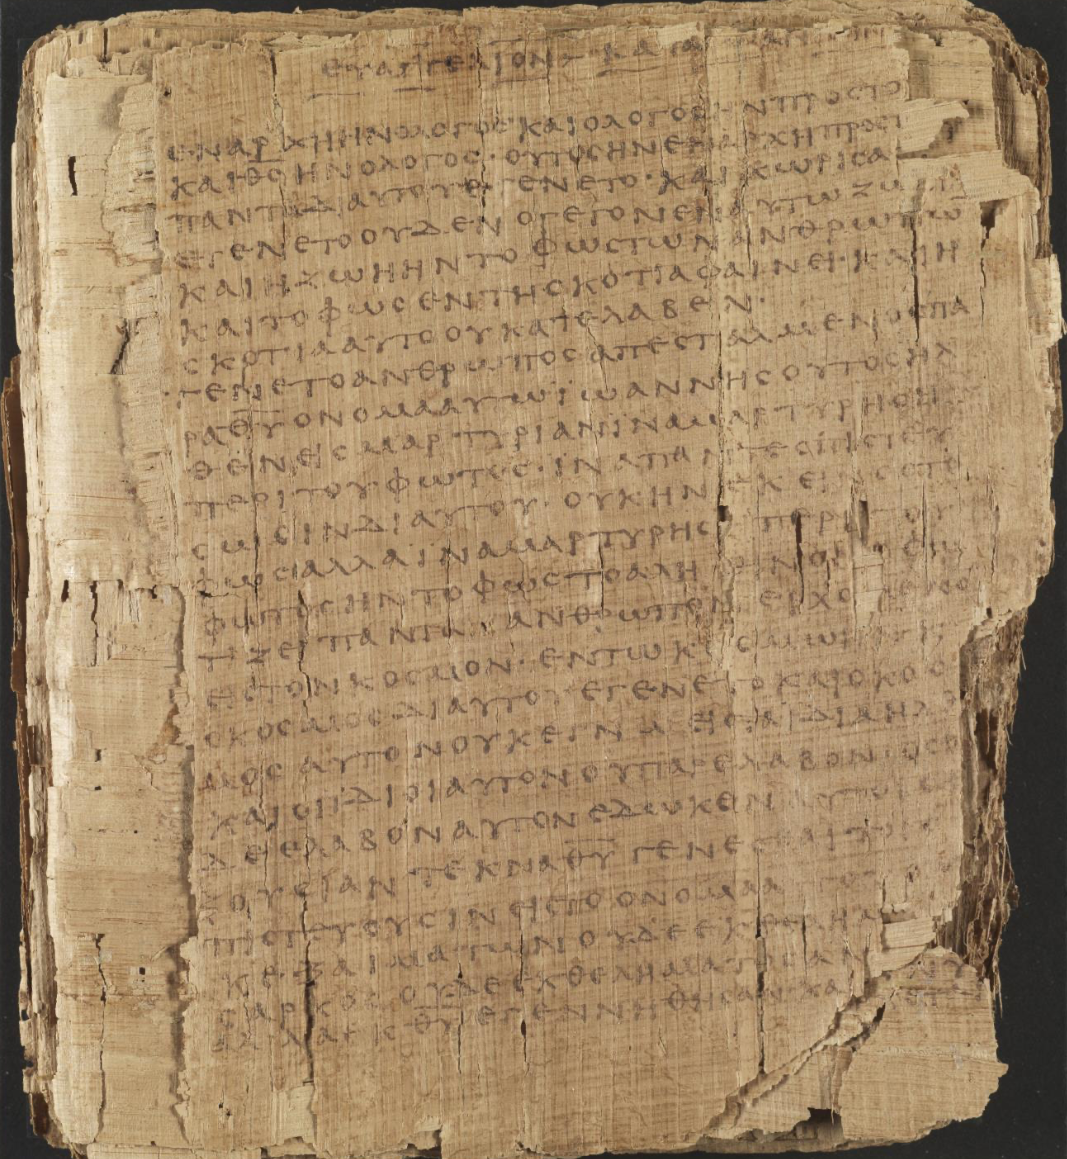 ΕΥΑΓΓΕΛΙΟΝ ΚΑΤΑ
ΕΝΑΡΧΗΗΝΟΛΟΓΟϹΚΑΙΟΛΟΓΟϹ ΝΠΡΟϹΤΟ
ΚΑΙΘ̅Ϲ̅ΗΝΟΛΟΓΟϹ·ΟΥΤΟϹΗΝΕΝΑΡΧΗΠΡΟϹΤ
ΠΑΝΤΑΔΙΑΥΤΟΥΕΓΕΝΕΤΟ·ΚΑΙΧΩΡΙϹΑ
ΕΓΕΝΕΤΟΟΥΔΕΝΟΓΕΓΟΝΕΝΕΝΑΥΤΩΖΩ
ΚΑΙΗΖΩΗΗΝΤΟΦΩϹΤΩΝΑΝΘΡΩΠΩ
ΚΑΙΤΟΦΩϹΕΝΤΗϹΚΟΤΙΑΦΑΙΝΕΙ·ΚΑΙΗ
ϹΚΟΤΙΑΑΥΤΟΟΥΚΑΤΕΛΑΒΕΝ·
ΓΕΝΕΤΟΑΝΘΡΩΠΟϹΑΠΕϹΤΑΛΜΕΝΟϹΠΑ
ΡΑΘ̅Υ̅ΟΝΟΜΑΑΥΤΩΪΩΑΝΝΗϹΟΥΤΟϹΗΛ
ΘΕΝΕΙϹΜΑΡΤΥΡΙΑΝΪΝΑΜΑΡΤΥΡΗϹΗ
ΠΕΡΙΤΟΥΦΩΤΟϹ·ΪΝΑΠΑΝΤΕϹΠΙϹΤΕΥ
ϹΩϹΙΝΔΙΑΥΤΟΥ·ΟΥΚΗΝΕΚΕΙΝΟϹΤΟ
ΦΩϹΑΛΛΑΪΝΑΜΑΡΤΥΡΗϹΗΠΕΡΙΤΟΥ
ΦΩΤΟϹΗΝΤΟΦΩϹΤΟΑΛΗΘΙΝΟΝ
ΤΙΖΕΙΠΑΝΤΑΑΝΘΡΩΠΟΝΕΡΧΟΜΕΝΟ
ΕΙϹΤΟΝΚΟϹΜΟΝ·ΕΝΤΩΚΟϹΜΩ
ΟΚΟϹΜΟϹΔΙΑΥΤΟΥΕΓΕΝΕΤΟΚΑΙΟΚΟϹ
ΜΟϹΑΥΤΟΝΟΥΚΕΓΝΩΕΙϹΤΑΪΔΙΑΗΛΘΕ
ΚΑΙΟΙΪΔΙΟΙΑΥΤΟΝΟΥΠΑΡΕΛΑΒΟΝ·ΟϹΟΙ
ΔΕΕΛΑΒΟΝΑΥΤΟΝΕΔΩΚΕΝΑΥΤΟΙϹ
ΞΟΥϹΙΑΝΤΕΚΝΑΘ̅Υ̅ΓΕΝΕϹΘΑΙ
ΠΙϹΤΕΥΟΥϹΙΝΕΙϹΤΟΟΝΟΜΑΑ
ΚΕΞΑΙΜΑΤΩΝΟΥΔΕΕΚΘΕΛΗΜΑ
ϹΑΡΚΟϹΟΥΔΕΕΚΘΕΛΗΜΑΤΟϹΑΝ
ΑΛΛΑΕΚΘ̅Υ̅ΕΓΕΝΝΗΘΗϹΑΝ·ΚΑΙ